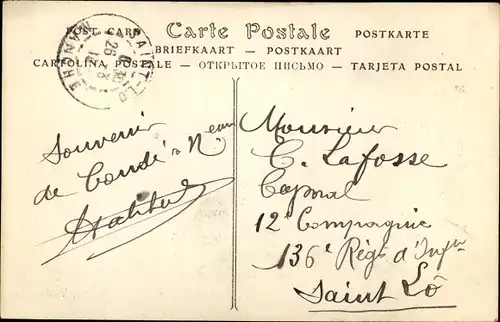 POST CARD Carte Postale POSTKARTE
BRIEFKAART — POSTKAART
CARTOLINA POSTALE — ОТКРЫТОЕ ПИСЬМО — TARJETA POSTAL
SAINT-LO
MANCHE
26
Souvenir
de Condé s Neau
Monsieur
C. Lafosse
Caporal
12e Compagnie
136e Régt d'Infie
Saint Lô